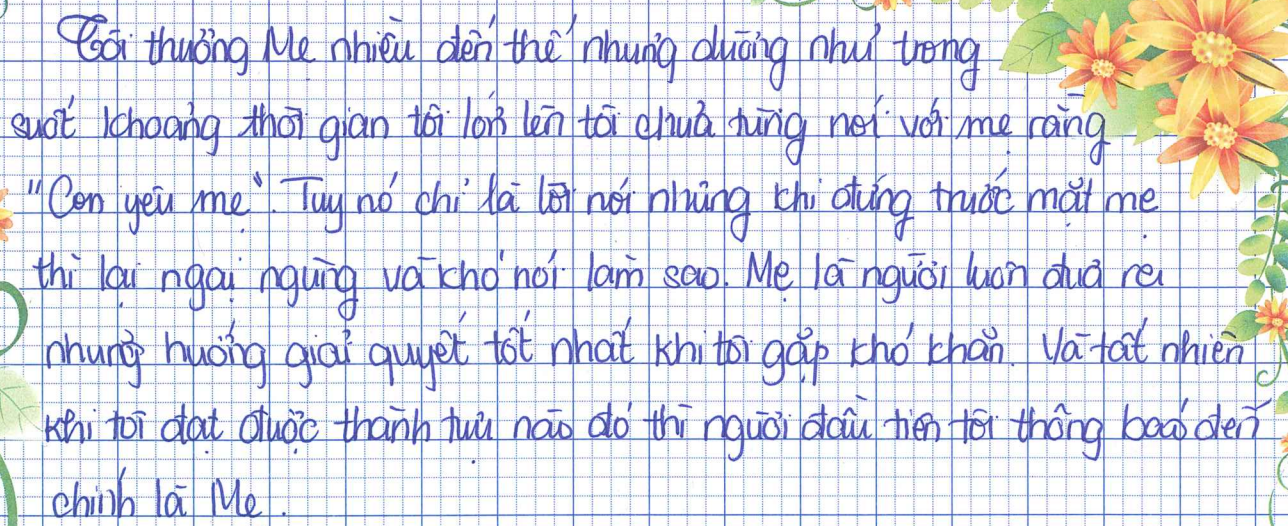 Tôi thương Mẹ nhiều đến thế nhưng dường như trong
suốt khoảng thời gian tôi lớn lên tôi chưa từng nói với mẹ rằng
"Con yêu mẹ". Tuy nó chỉ là lời nói nhưng khi đứng trước mặt mẹ
thì lại ngại ngùng và khó nói làm sao. Mẹ là người luôn đưa ra
những hướng giải quyết tốt nhất khi tôi gặp khó khăn. Và tất nhiên
khi tôi đạt được thành tựu nào đó thì người đầu tiên tôi thông báo đến
chính là Mẹ.